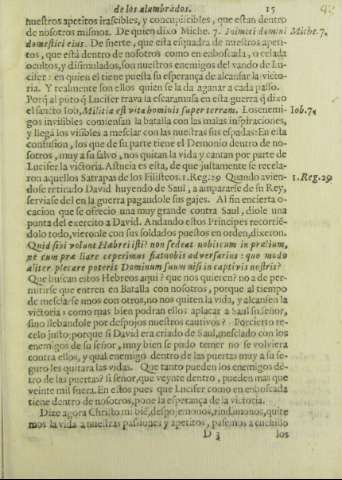 de los alumbrados. 15
nuestros apetitos irascibles, y concupiscibles, que estan dentro
de nosotros mismos. De quien dixo Miche. 7. Inimici domini Miche. 7.
domestici eius. De suerte, que esta esquadra de nuestros apeti-
tos, que està dentro de nosotros como en emboscada, o celada
ocultos, y dissimulados, son nuestros enemigos del vando de Lu-
cifer: en quien el tiene puesta su esperança de alcansar la victo-
ria. Y realmente son ellos quien se la da aganar a cada passo.
Porq̃ al pũto q̃ Lucifer trava la escaramusa en esta guerra q̃ dixo
el sancto Iob, Militia est vita hominis super terram. Los enemi- Iob. 7.
gos invisibles comensan la batalla con las malas inspiraciones,
y llegã los visibles a mesclar con las nuestras sus espadas: En esta
confusion, los que de su parte tiene el Demonio dentro de no-
sotros, muy a su salvo, nos quitan la vida y cantan por parte de
Lucifer la victoria. Astucia es esta, de que justamente se recela-
ron aquellos Satrapas de los Filisteos. 1. Reg. 29. Quando avien- 1. Reg. 29
dose retirado David huyendo de Saul, a ampararse de su Rey,
serviase del en la guerra pagandole sus gajes. Al fin encierta o-
cacion que se ofrecio una muy grande contra Saul, diole una
punta del exercito a David. Andando estos Principes recorriē-
dolo todo, vieronle con sus soldados puestos en orden, dixeron.
Quid sibi volunt Hebrei isti? non sedeat nobiscum in prælium,
ne cum præliare ceperimus fiat nobis adversarius: quo modo
aliter placare poteris Dominum suum nisi in captivis nostris?
Que buscan estos Hebreos aqui? que nos quieren? no a de per-
mitirse que entren en Batalla con nosotros, porque al tiempo
de mesclarse unos con otros, no nos quiten la vida, y alcansen la
victoria: como mas bien podran ellos aplacar a Saul su señor,
sino llebandole por despojos nuestros cautivos? Por cierto re-
celo justo; porque si David era criado de Saul, mesclado con los
enemigos de su señor, muy bien se pudo temer no se volviera
contra ellos, y qual enemigo dentro de las puertas muy a su se-
guro les quitara las vidas. Que tanto pueden los enemigos dē-
tro de las puertas? si señor, que veynte dentro, pueden mas que
veinte mil fuera. En estos pues que Lucifer como en emboscada
tiene dentro de nosotros, pone la esperança de la victoria.
Dize agora Christo mi biē, despojemonos, rindamonos, quite
mos la vida a nuestras passiones y apetitos, passemos a cuchillo
D 3 los